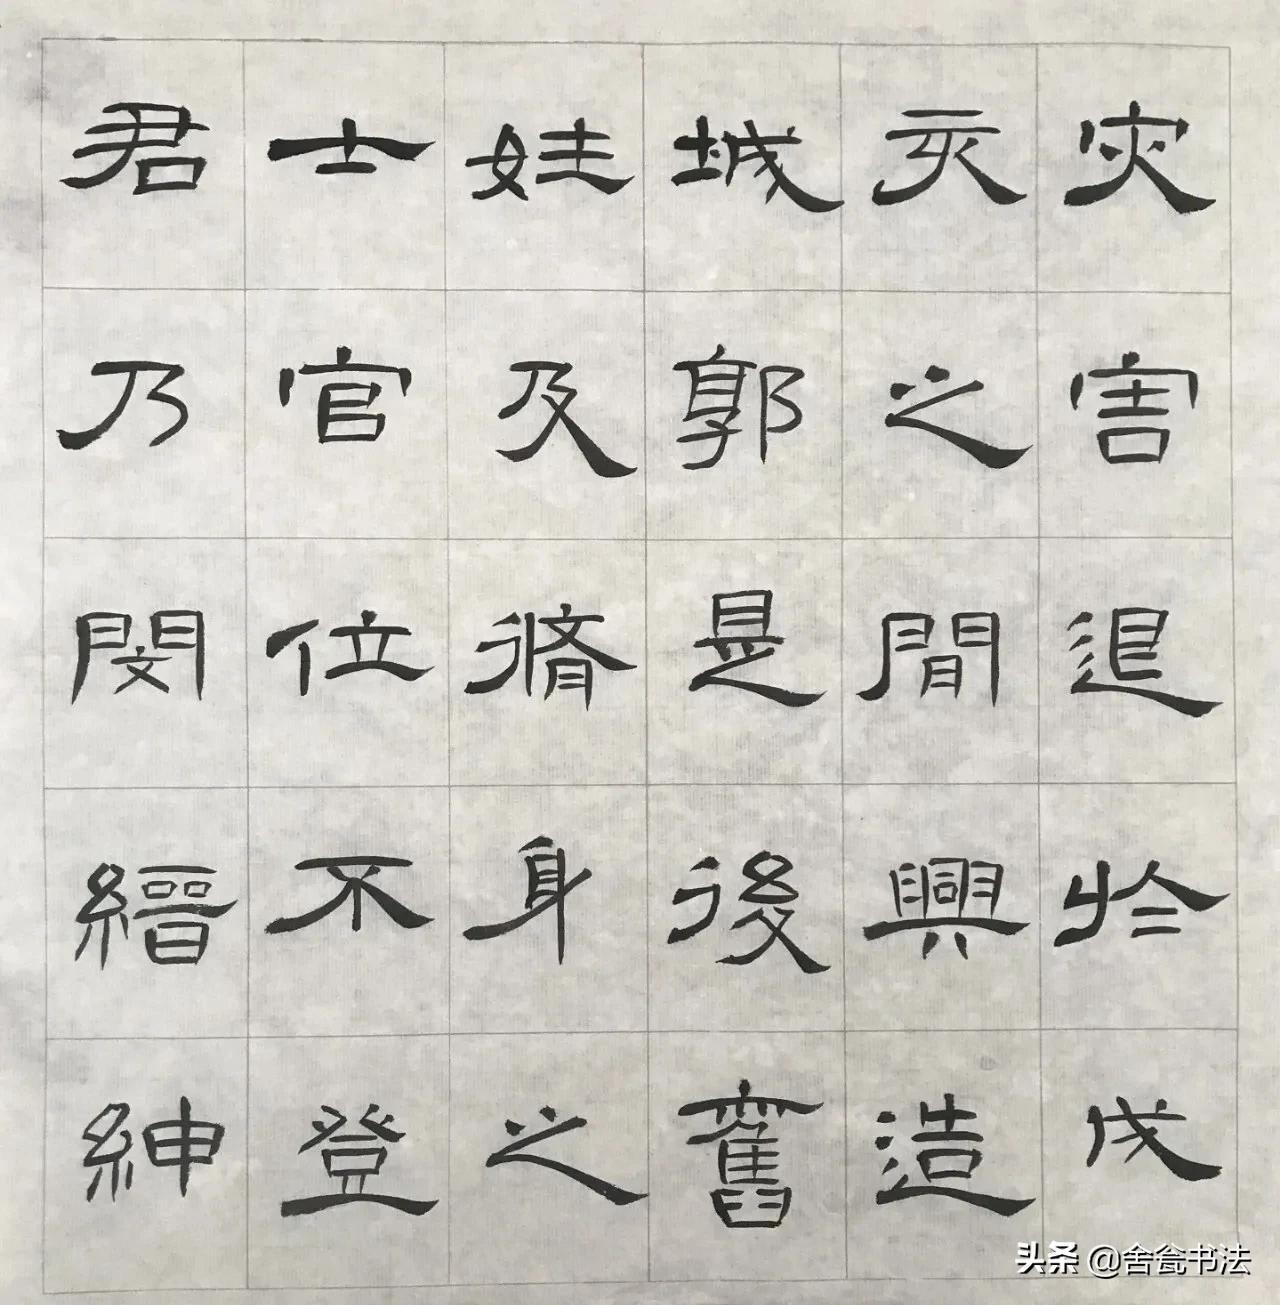 灾害退於戌
亥之間興造
城郭是後舊
娃及脩身之
士官位不登
君乃閔縉紳
头条 @舍瓮书法